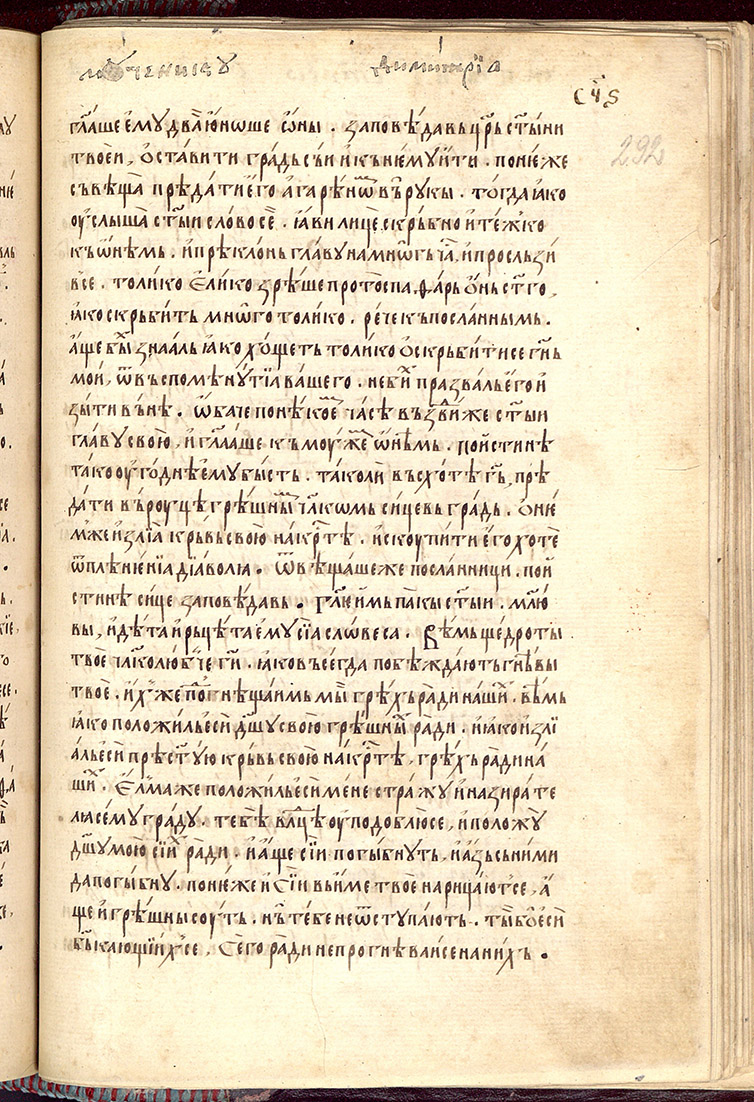 мⷱ҇еникꙋ димитрїа
сч҃ѕ
292
гл҃аше ємꙋ два юноше ѡны . заповѣда вь цр҃ь ст҃ыни
твоеи , ѡставити градь сьи и кь нѥмꙋ ити . понѥже
сьвѣща прѣдати ѥго агарѣномь вь рꙋкы . тогда ꙗко
оуслыша ст҃ыи слово се . ꙗви лице скрьбно и тежко
кь ѡнѣмь . и прѣклонь главꙋ на мнѡгь ча҃ . и просльзи
все . толико елико зрѣше протоспаѳарь ѡнь ст҃го ,
ꙗко скрьбить мнѡго толико . рече кь посланнымь .
аще бы зналь ꙗко хощеть толико ѡскрьбитисе гн҃ь
мои , ѿ вьспоменꙋтїа вашего . не би празваль ѥго и
зыти вьне . ѡбаче по нѣкоѥ часѣ вьздвиже ст҃ыи
главꙋ свою , и гл҃ааше кь моужѥмь ѡнѣмь . поистинѣ
тако оугоднѣ ѥмꙋ бысть . тако ли вьсхотѣ гь҃ , прѣ
дати вь роуцѣ грѣшнымь чл҃комь сицевь градь . ѡ нѥ
мже излїа крьвь свою на крⷭ҇тѣ . искоупити ѥго хоте
ѿ плѣнѥнїа дїаволꙗ . ѿвѣщаше же посланници . пои
стинѣ сице заповѣдавь . гл҃ѥ имь пакы ст҃ыи . млю҃
вы , идѣта и рьцѣта ѥмꙋ сїа словеса . вѣмь щедроты
твоѥ чл҃колюбче ги҃ . ꙗко вьсегда побѣждають гнѣвы
твоѥ . ихже прогнѣвшаимь мы грѣхь ради нашихь . вѣмь
ꙗко положиль ѥси дш҃ꙋ свою грѣшныхь ради . и ꙗко излї
аль ѥси прѣст҃ꙋю крьвь свою на крⷭ҇тѣ , грѣхь ради на
шихь . елма же положиль ѥси мене стражꙋ и назирате
лꙗ семꙋ градꙋ . тебѣ влⷣце оуподоблюсе , и положꙋ
дш҃ꙋ мою сїихь ради . и аще сїи погыбнꙋть , и азь сь ними
да погыбнꙋ . понѥже и сїи вь име твоѥ нарицаютсе , а
ще и грѣшны соуть . нь тебе не ѿстꙋпають . ты бо ѥси
б҃ь кающїихсе , сего ради не прогнѣваисе на нихь .